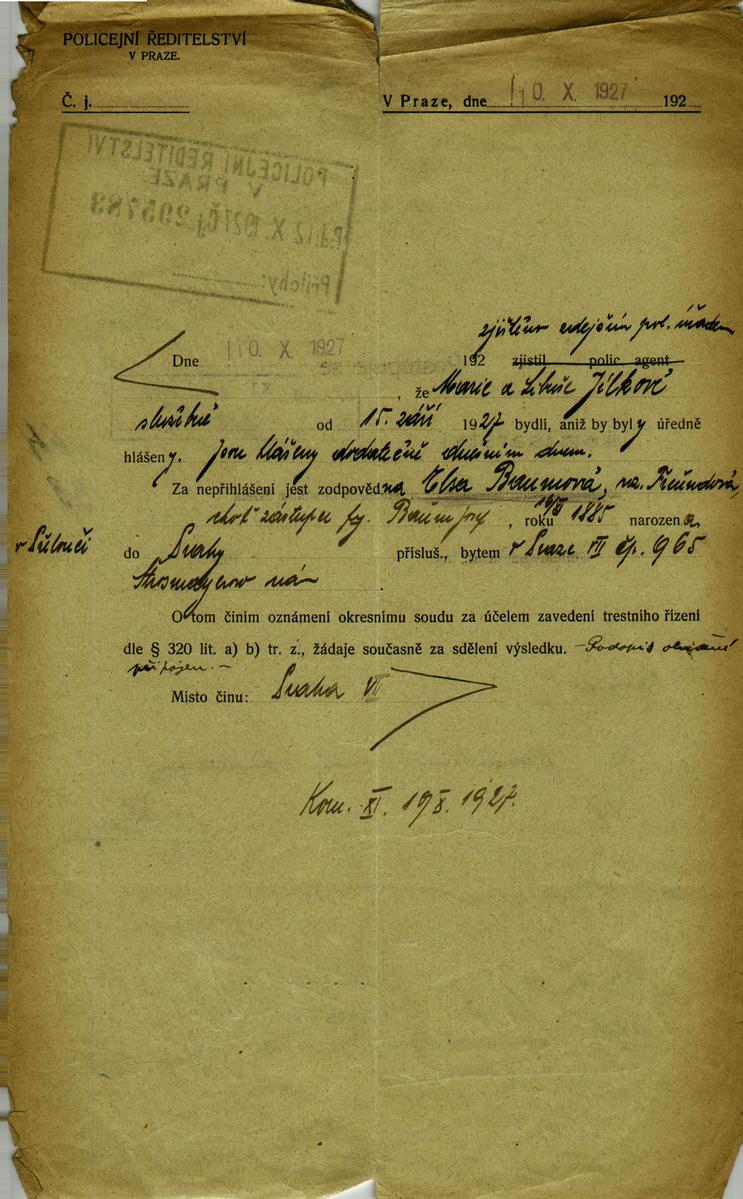 POLICEJNÍ ŘEDITELSTVÍ
V PRAZE.
Č. j.
V Praze, dne 10. X. 1927 192
POLICEJNÍ ŘEDITELSTVÍ
V PRAZE
Pd: 12. X. 1927 Čj 295783
Přílohy:
zjištěno zdejším pol. úřadem
Dne 10. X. 1927 192 zjistil polic agent
, že Marie a Libuše Jílkové
služebné od 15. září 1927 bydlí, aniž by byly úředně
hlášeny. Jsou hlášeny dodatečně dnešním dnem.
Za nepřihlášení jest zodpovědna Elsa Baumová, roz. Freundová,
choť zástupce fy. Baum Josef, roku 1885 narozena
v do Prahy přísluš., bytem v Praze VII čp. 965
Strosmayerovo nám
O tom činím oznámení okresnímu soudu za účelem zavedení trestního řízení
dle § 320 lit. a) b) tr. z., žádaje současně za sdělení výsledku. – Podpis obviněné
připojen. –
Místo činu: Praha VII
Kom. XI. 1927.